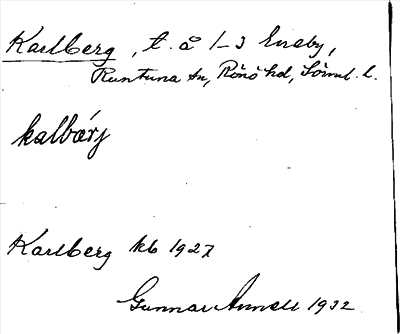 Karlberg, t. å 1-3 Eneby,
Runtuna sn, Rönö hd, Söml. l.
kalbærj
Karlberg kb 1927
Gunnar Annell 1932